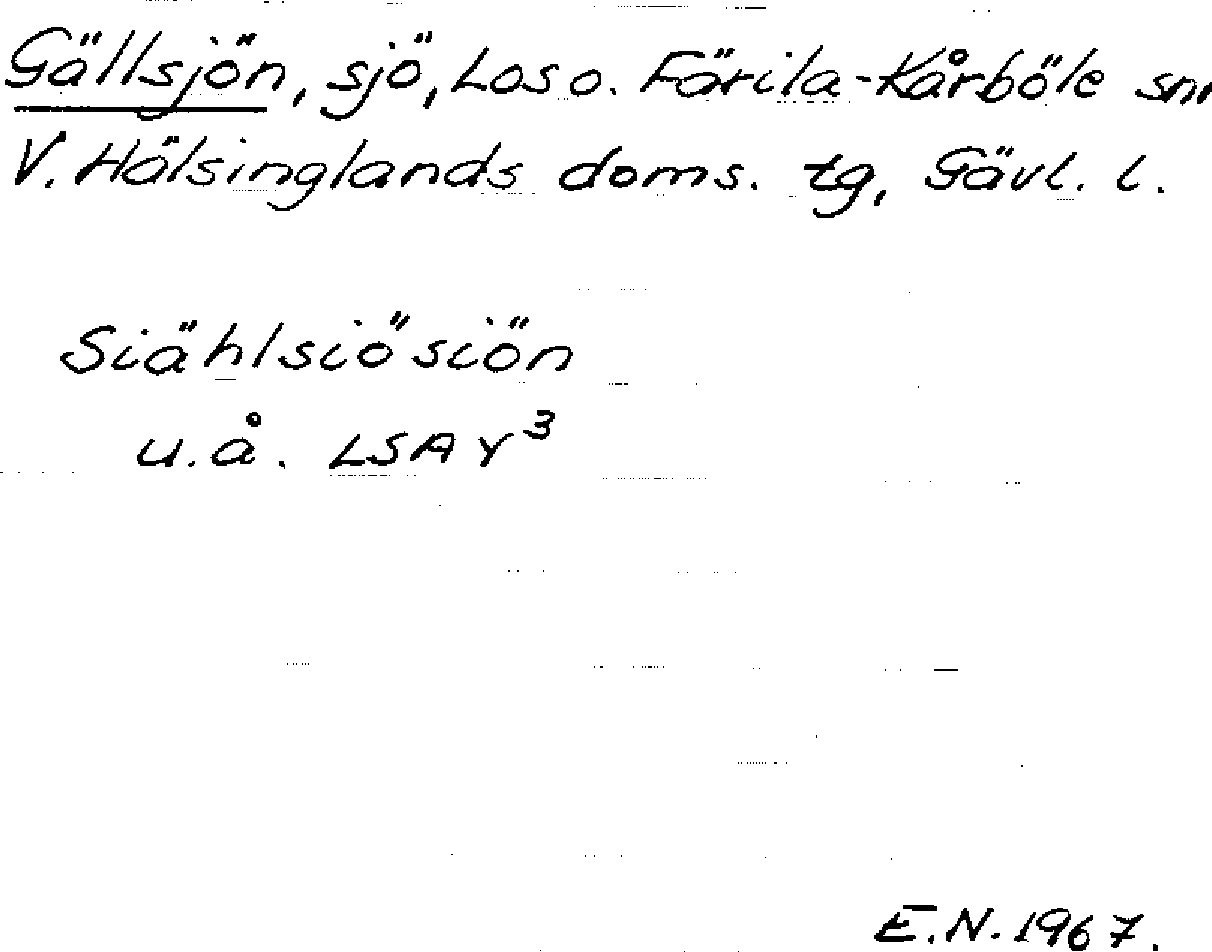 Gällsjön, sjö, Los o. Färila-Kårböle snr
V. Hälsinglands doms. tg, Gävl. l.
Siählsiösiön
u.å. LSA Y³
E.N. 1967.